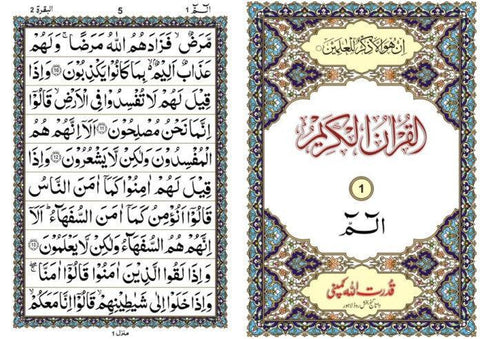 البقرة 2
5
الٓمّٓ 1
مَّرَضٌ ۙ فَزَادَهُمُ اللّٰهُ مَرَضًا ۚ وَلَهُمْ
عَذَابٌ اَلِيْمٌۢ ۙ بِمَا كَانُوْا يَكْذِبُوْنَ ﴿۱۰﴾ وَاِذَا
قِيْلَ لَهُمْ لَا تُفْسِدُوْا فِى الْاَرْضِ ۙ قَالُوْٓا
اِنَّمَا نَحْنُ مُصْلِحُوْنَ ﴿۱۱﴾ اَلَآ اِنَّهُمْ هُمُ
الْمُفْسِدُوْنَ وَلٰكِنْ لَّا يَشْعُرُوْنَ ﴿۱۲﴾ وَاِذَا
قِيْلَ لَهُمْ اٰمِنُوْا كَمَآ اٰمَنَ النَّاسُ
قَالُوْٓا اَنُؤْمِنُ كَمَآ اٰمَنَ السُّفَهَآءُ ؕ اَلَآ
اِنَّهُمْ هُمُ السُّفَهَآءُ وَلٰكِنْ لَّا يَعْلَمُوْنَ ﴿۱۳﴾
وَاِذَا لَقُوا الَّذِيْنَ اٰمَنُوْا قَالُوْٓا اٰمَنَّا ۖۚ
وَاِذَا خَلَوْا اِلٰى شَيٰطِيْنِهِمْ ۙ قَالُوْٓا اِنَّا مَعَكُمْ ۙ
منزل ۱
اِنْ هُوَ اِلَّا ذِكْرٌ لِّلْعٰلَمِيْنَ
اَلْقُرْاٰنُ الْكَرِيْمُ
1
الٓمّٓ
قدرت اللہ کمپنی